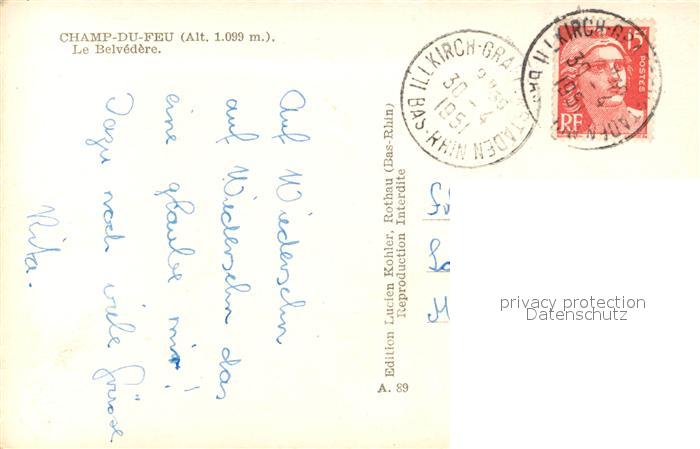 CHAMP-DU-FEU (Alt. 1.099 m.).
Le Belvédère.
Auf Wiedersehn
auf Wiedersehn das
eine glaube mir!
Dazu noch viele Grüsse
Rita.
Edition Lucien Kohler, Rothau (Bas-Rhin)
Reproduction Interdite
A. 89
ILLKIRCH-GRAFFENSTADEN BAS-RHIN
30 - 4
1951
ILLKIRCH-GRA TADEN BAS RHIN
30 - 4
1951
15F
POSTES
RF
privacy protection
Datenschutz